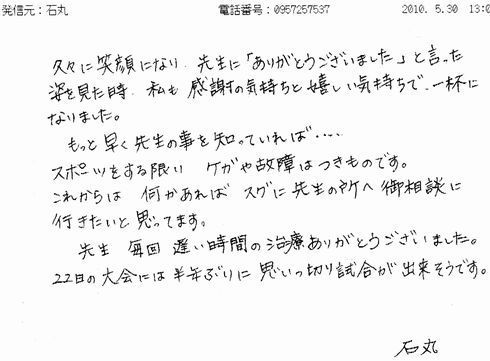 発信元：石丸 電話番号：0957257537 2010. 5.30 13:0
久々に笑顔になり、先生に「ありがとうございました」と言った
姿を見た時、私も感謝の気持ちと嬉しい気持ちで、一杯に
なりました。
もっと早く先生の事を知っていれば・・・・
スポーツをする限り ケガや故障はつきものです。
これからは 何かあれば スグに先生の所へ御相談に
行きたいと思ってます。
先生 毎回 遅い時間の治療ありがとうございました。
22日の大会には半年ぶりに思いっ切り試合が出来そうです。
石丸